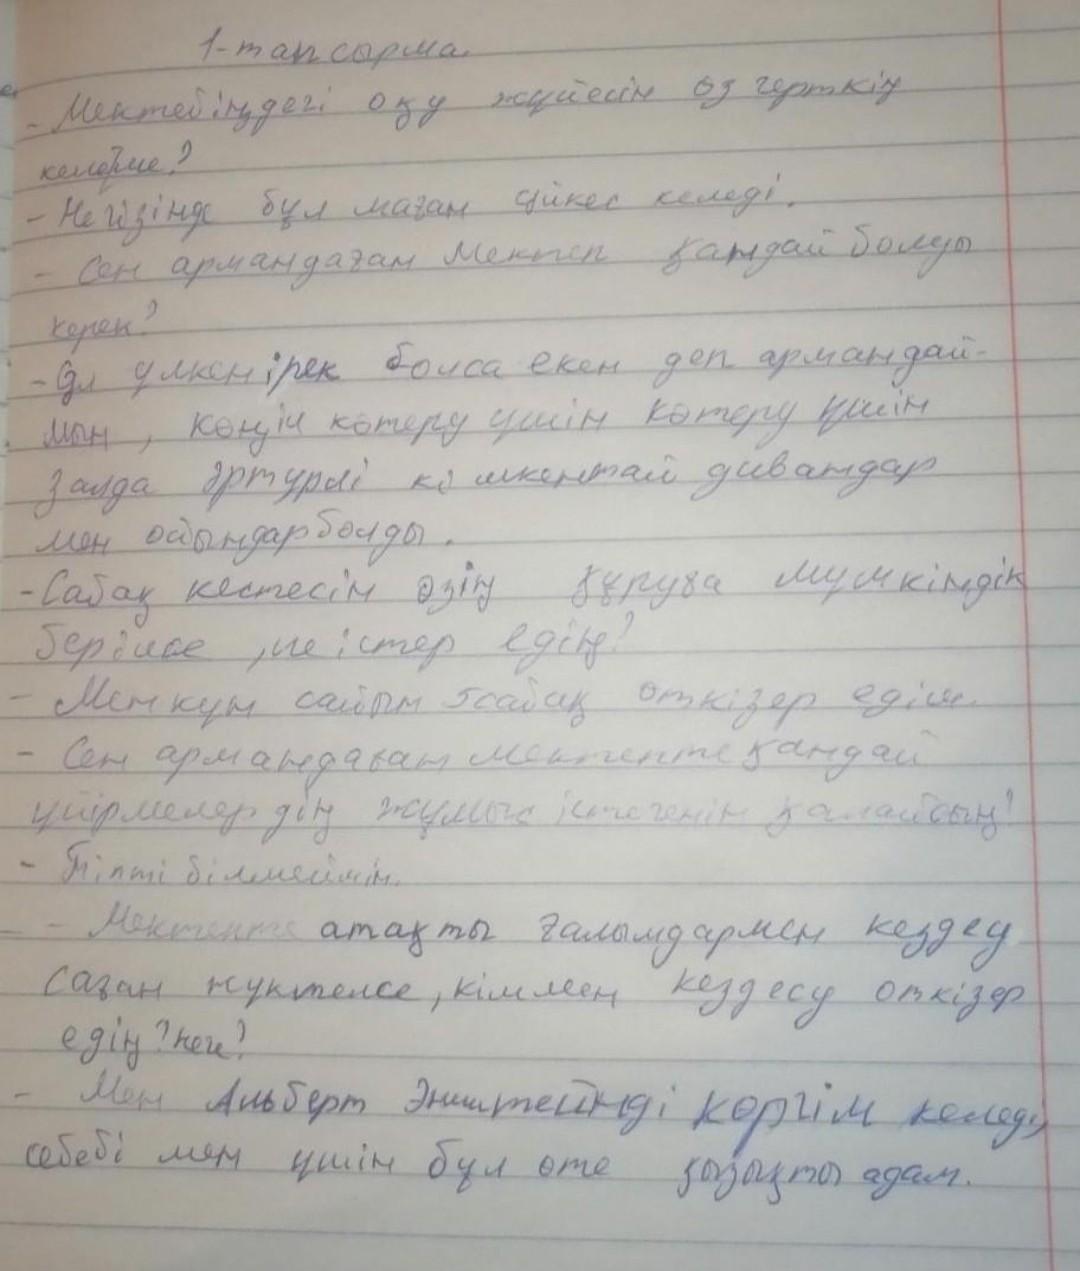 1-тапсырма.
- Мектебіңдегі оқу жүйесін өзгерткің
келетме?
- Негізінде бұл маған сәйкес келеді.
- Сен армандаған Мектеп қандай болуы
керек?
- Ол үлкенірек болса екен деп армандай-
мын, көңіл көтеру үшін көтеру үшін
Залда әртүрлі кішкентай дивандар
мен ойындар болды.
- Сабақ кестесін өзің құруға мүмкіндік
берілсе, не істер едің?
- Мен күн сайын 5 сабақ өткізер едім.
- Сен армандаған мектепте қандай
үйірмелердің жұмыс істегенін қалайсың?
- Тіпті білмеймін.
- Мектепте атақты ғалымдармен кездесу
саған жүктелсе, кіммен кездесу өткізер
едің? Неге?
- Мен Альберт Энштейнді көргім келеді,
себебі мен үшін бұл өте қызықты адам.